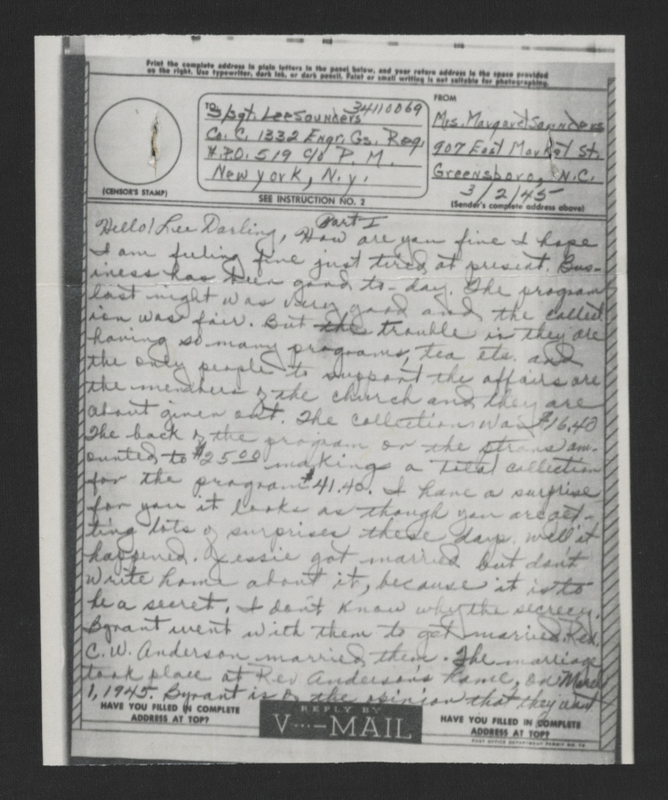 Print the complete address in plain letters in the panel below, and your return address in the space provided
on the right. Use typewriter, dark ink, or dark pencil. Faint or small writing is not suitable for photographing.
TO
S/Sgt. Lee Saunders 34110069
Co. C. 1332 Engr. Gs. Reg.
A.P.O. 519 c/o P. M.
New York, N.Y.
FROM
Mrs. Margaret Saunders
907 East Market St.
Greensboro, N.C.
3/2/45
(CENSOR'S STAMP)
SEE INSTRUCTION NO. 2
(Sender's complete address above)
Part I
Hello! Lee Darling, How are you fine I hope
I am feeling fine just tired at present. Bus-
iness has been good to-day. The program
last night was very good and the collect
ion was fair. But the trouble is they are
having so many programs, tea ets. and
the only people to support the affairs are
the members of the church and they are
about given out. The collection was $16.40
The back of the program or the am-
ounted to $25.00 making a total collection
for the program $41.40. I have a surprise
for you it looks as though you are get-
ting lots of surprises these days. well it
happened. Lessie got married but don't
write home about it, because it is to
be a secret. I don't know why the secrecy.
Byrant went with them to get married. Rev.
C. W. Anderson married them. The marriage
took place at Rev Anderson's home, on March
1, 1945. Byrant is of the opinion that they
HAVE YOU FILLED IN COMPLETE
ADDRESS AT TOP?
REPLY BY
V···—MAIL
HAVE YOU FILLED IN COMPLETE
ADDRESS AT TOP?
POST OFFICE DEPARTMENT PERMIT NO.